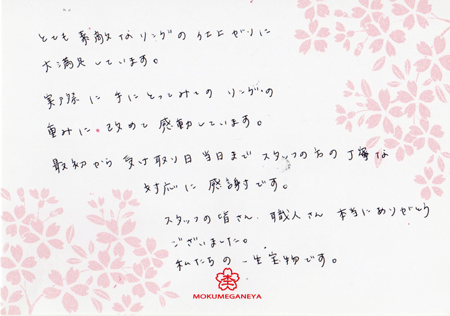 とても素敵なリングの仕上がりに
大満足しています。
実際に手にとってみてのリングの
重みに。改めて感動しています。
最初から受け取り日当日までスタッフの方の丁寧な
対応に感謝です。
スタッフの皆さん、職人さん本当にありがとう
ございました。
私たちの一生宝物です。
MOKUMEGANEYA